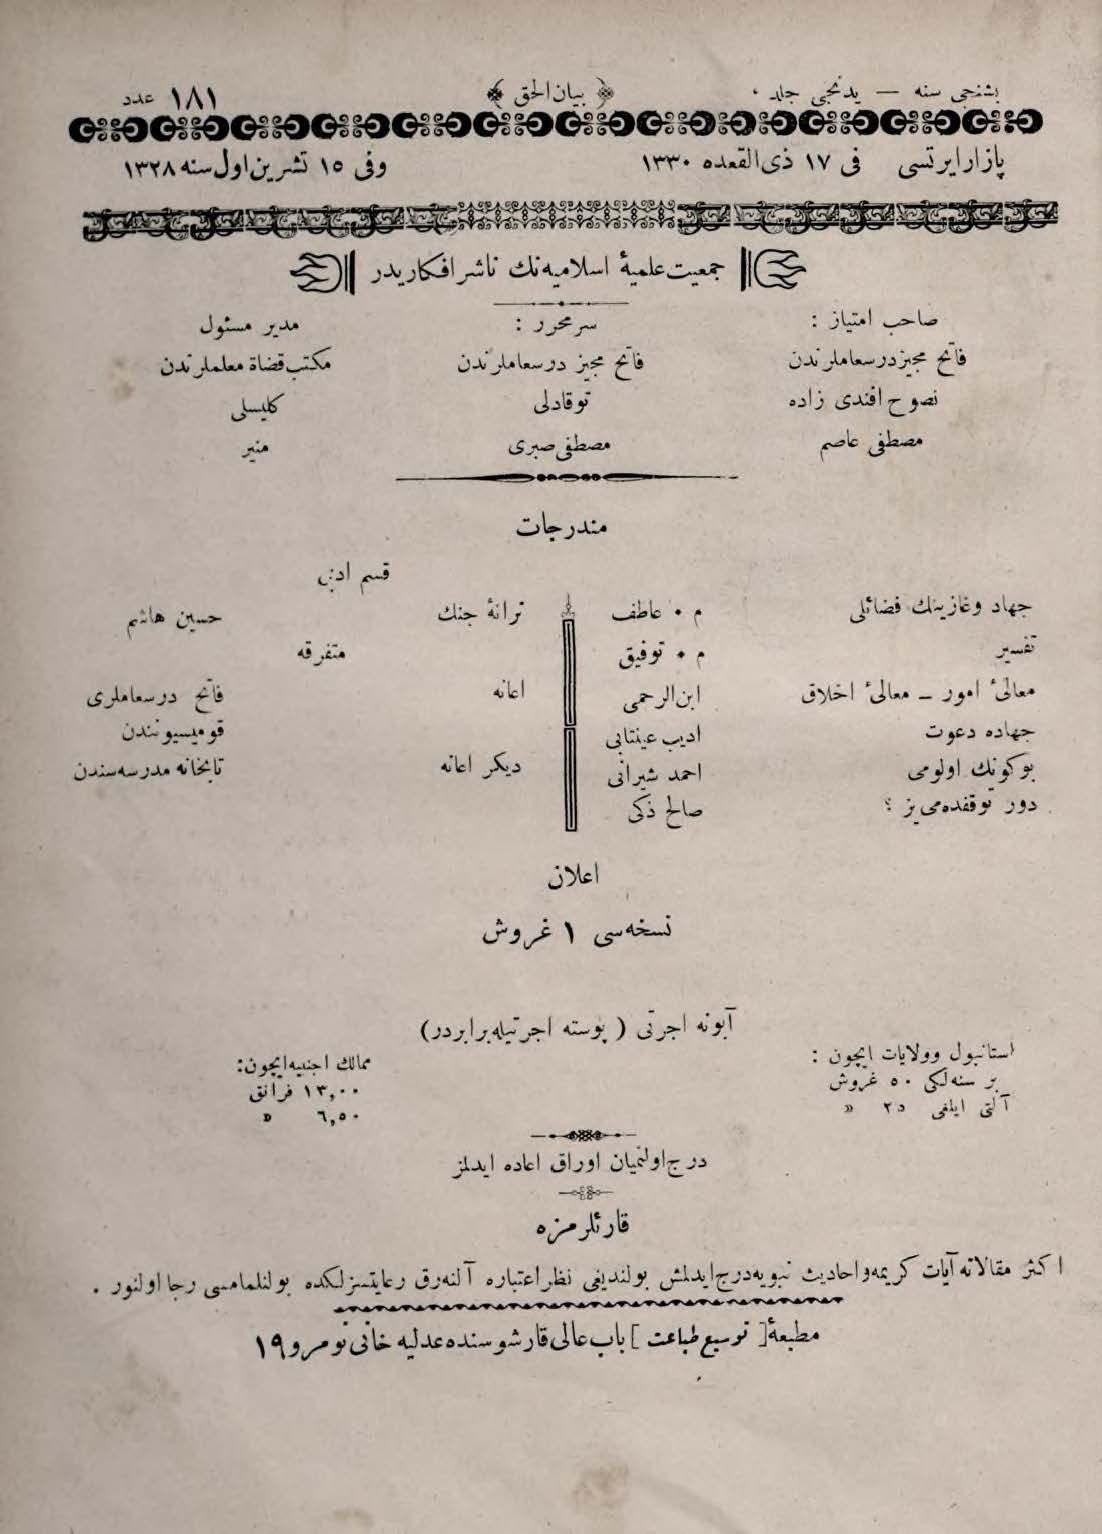 بشنجی سنه — یدنجی جلد ﴿ بیان الحق ﴾ ١٨١ عدد
پازار ایرتسی فی ١٧ ذی القعده ١٣٣٠ وفی ١٥ تشرین اول سنه ١٣٢٨
جمعیت علمیهٔ اسلامیه نك ناشر افكاریدر
صاحب امتیاز :
فاتح مجیز درسعاملرندن
نصوح افندی زاده
مصطفی عاصم
سرمحرر :
فاتح مجیز درسعاملرندن
توقادلی
مصطفی صبری
مدیر مسئول
مكتب قضاة معلملرندن
كلیسلی
منیر
مندرجات
جهاد وغازینك فضائلی م . عاطف
تفسیر م . توفیق
معالئ امور ــ معالئ اخلاق ابن الرحمی
جهاده دعوت ادیب عینتابی
بوكونك اولومی احمد شیرانی
دور توقفده می یز ؟ صالح ذكی
قسم ادبی
ترانهٔ جنك حسین هاشم
متفرقه
اعانه فاتح درسعاملری
قومیسیونندن
دیكر اعانه تابخانه مدرسه سندن
اعلان
نسخه سی ١ غروش
آبونه اجرتی ( پوسته اجرتیله برابردر)
استانبول وولایات ایچون :
بر سنه لكی ٥٠ غروش
آلتی ایلغی ٢٥ »
ممالك اجنبیه ایچون:
١٣,٠٠ فرانق
٦,٥٠ »
درج اولنمیان اوراق اعاده ایدلمز
قارئلرمزه
اكثر مقالاته آیات كریمه واحادیث نبویه درج ایدلمش بولندیغی نظر اعتباره آلنه رق رعایتسزلكده بولنلمامسی رجا اولنور .
مطبعهٔ [ توسیع طباعت ] باب عالی قارشوسنده عدلیه خانی نومرو ١٩